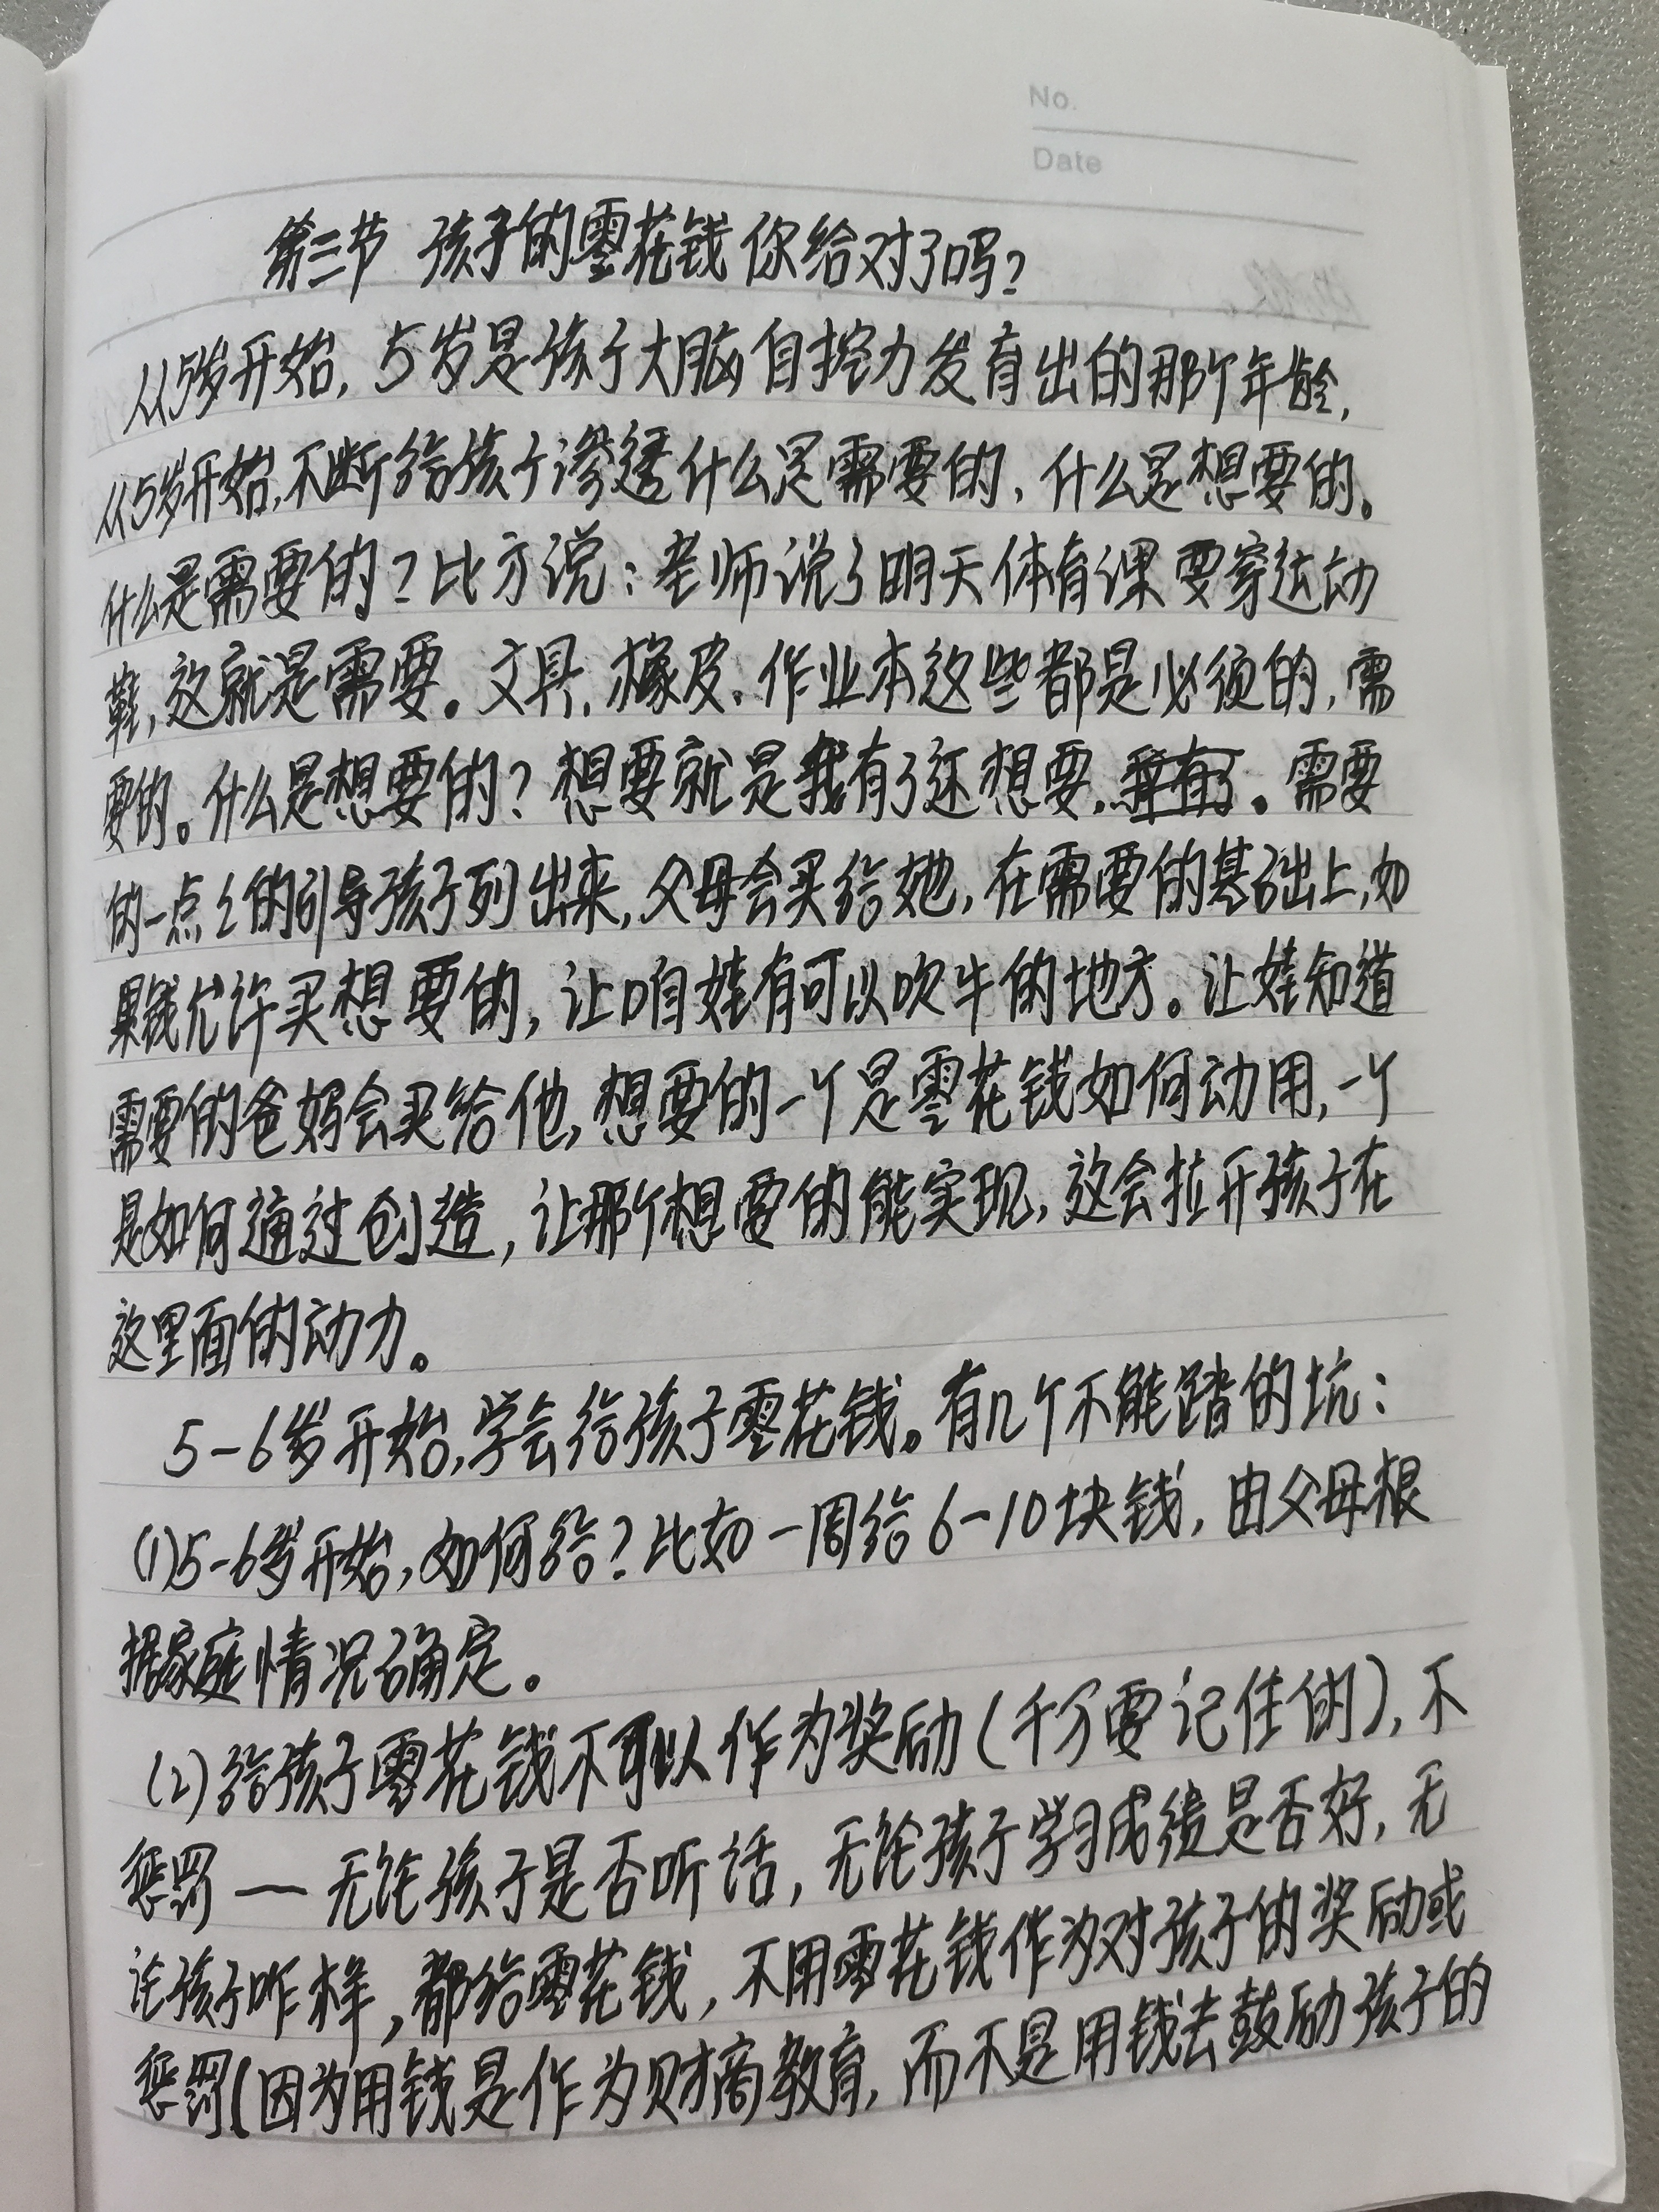 No.
Date
第三节 孩子的零花钱你给对了吗?
从5岁开始,5岁是孩子大脑自控力发育出的那个年龄,
从5岁开始,不断给孩子渗透什么是需要的,什么是想要的。
什么是需要的?比方说:老师说了明天体育课要穿运动
鞋,这就是需要。文具,橡皮,作业本这些都是必须的,需
要的。什么是想要的?想要就是我有了还想要。需要
的一点々的引导孩子列出来,父母会买给她,在需要的基础上,如
果钱允许买想要的,让咱娃有可以吹牛的地方。让娃知道
需要的爸妈会买给他,想要的一个是零花钱如何动用,一个
是如何通过创造,让那个想要的能实现,这会拉开孩子在
这里面的动力。
5-6岁开始,学会给孩子零花钱。有几个不能踏的坑:
(1)5-6岁开始,如何给?比如一周给6-10块钱,由父母根
据家庭情况确定。
(2)给孩子零花钱不可以作为奖励(千万要记住的),不
惩罚——无论孩子是否听话,无论孩子学习成绩是否好,无
论孩子咋样,都给零花钱,不用零花钱作为对孩子的奖励或
惩罚(因为用钱是作为财商教育,而不是用钱去鼓励孩子的